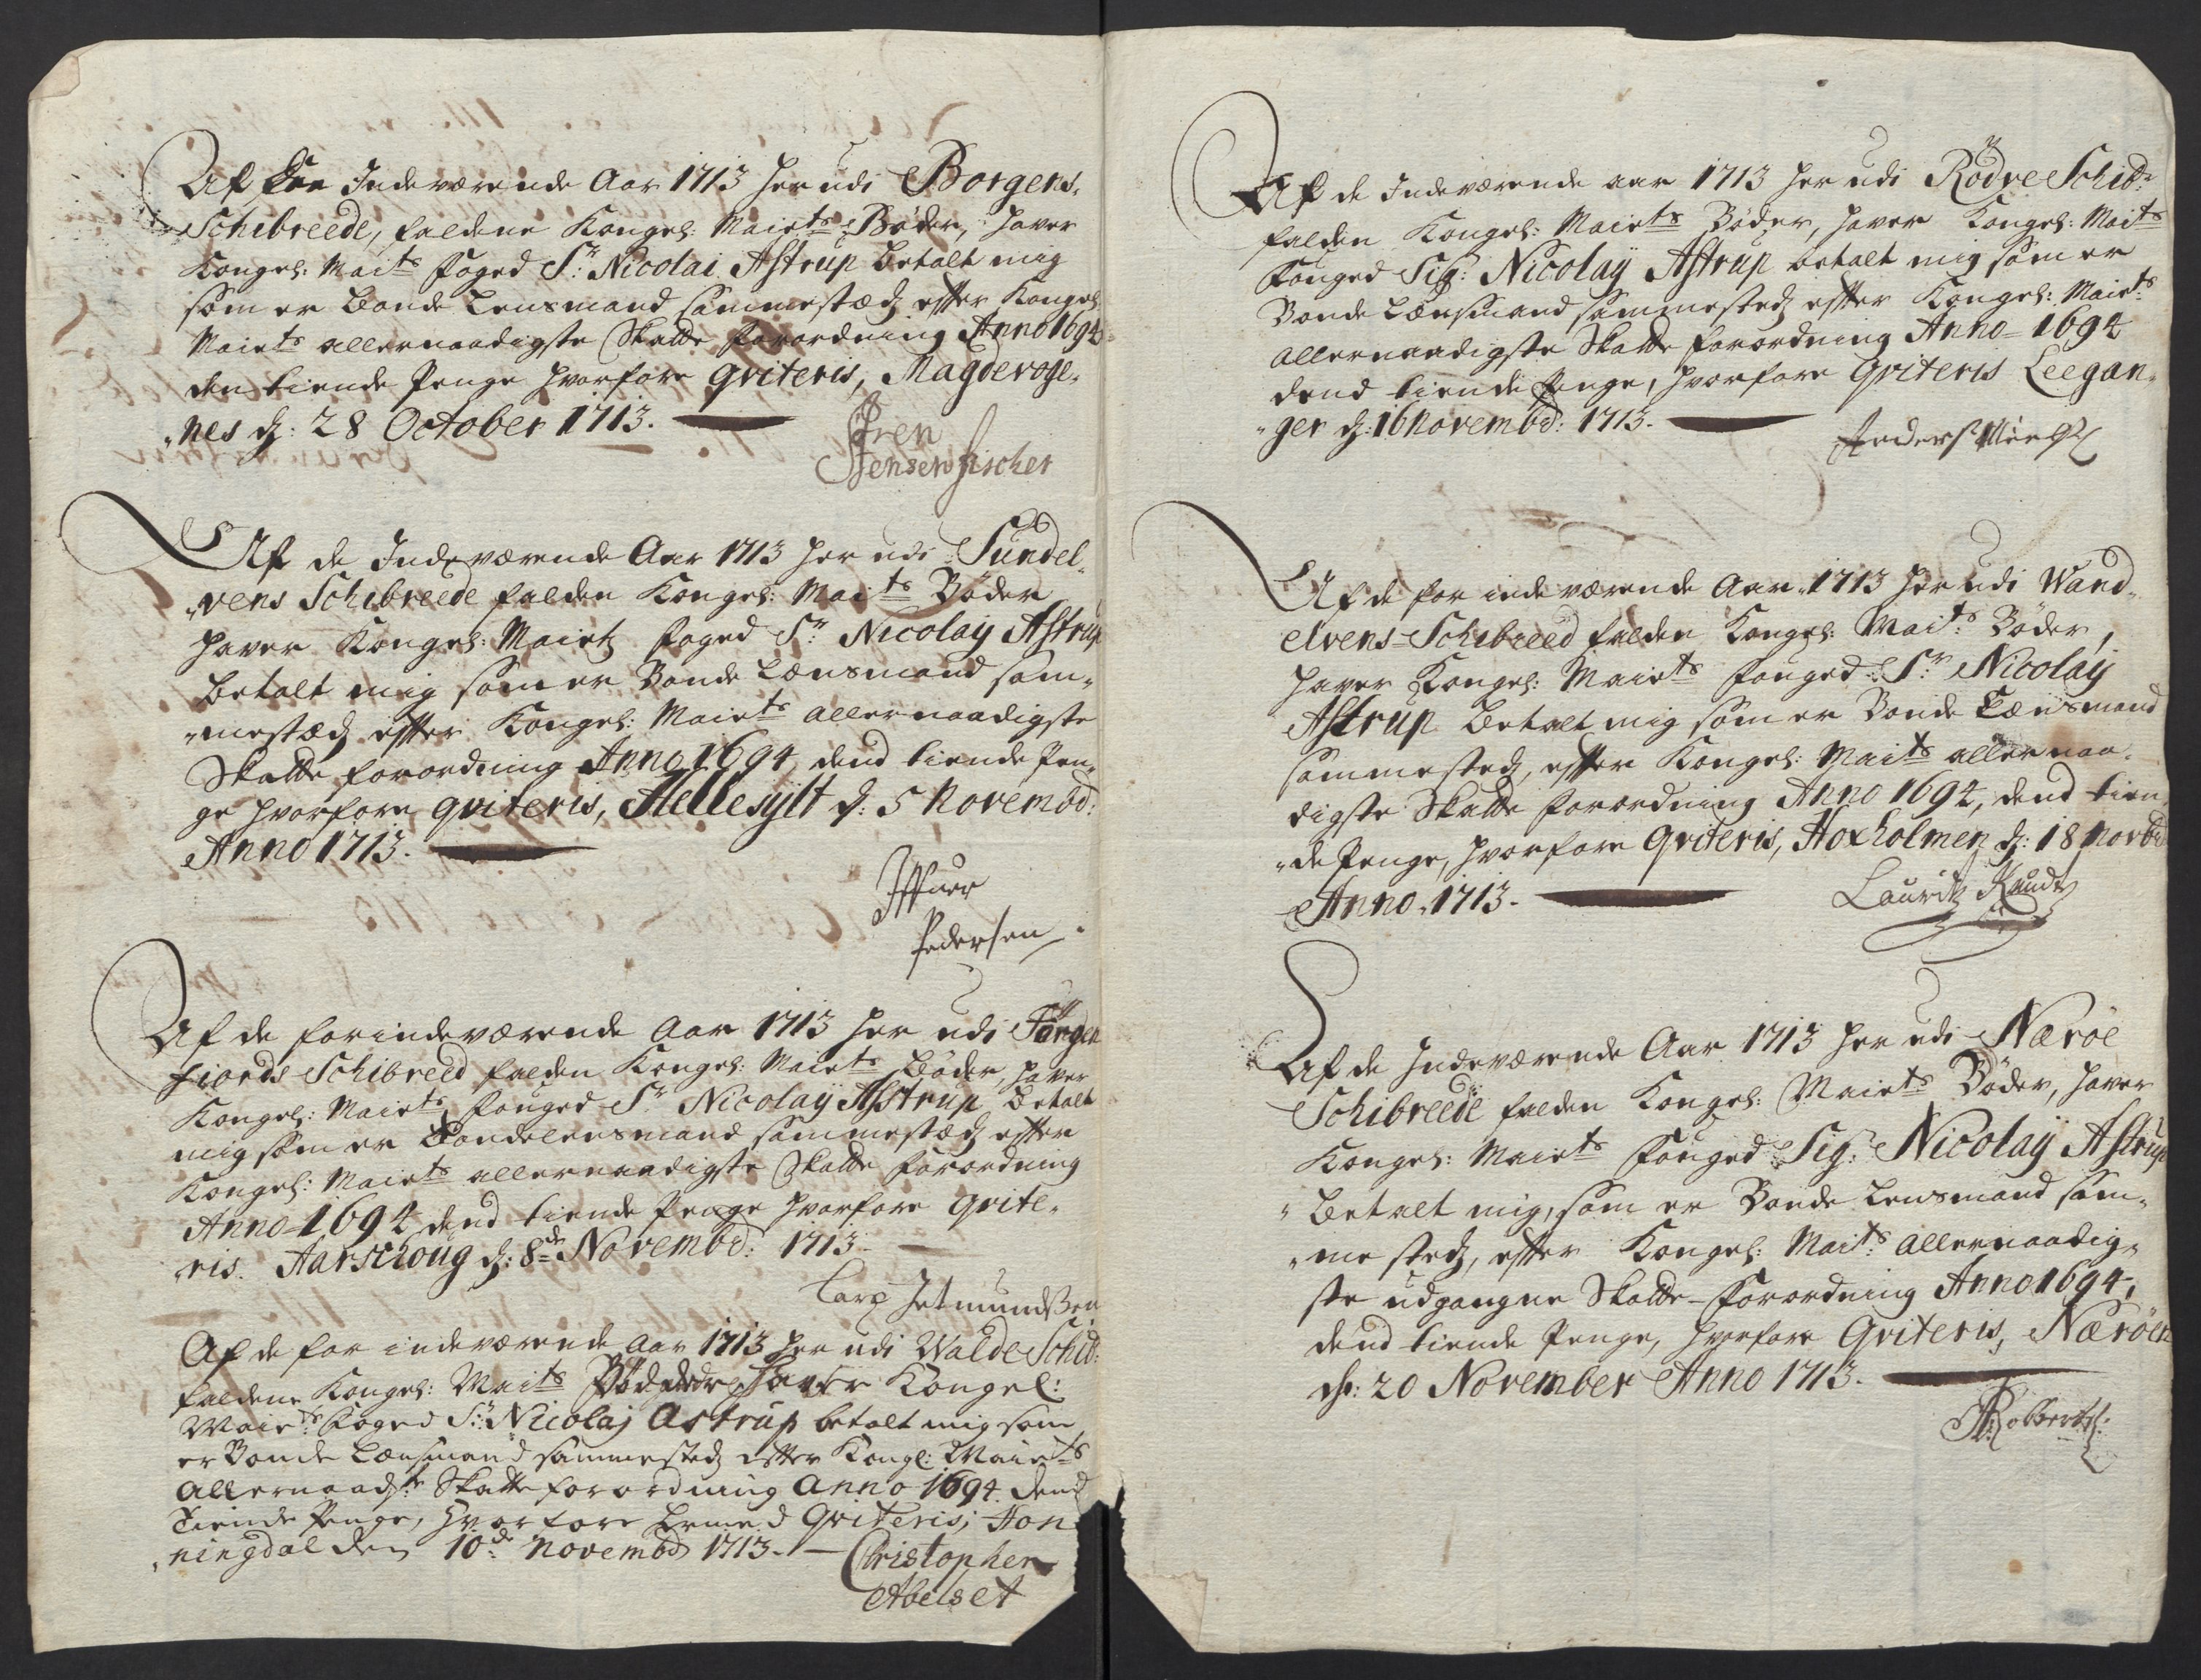 Af for Indeværende Aar 1713 her udi Borgens
Schibreede, faldene Kongel: Maiets Bøder, haver
Kongel: Maits Foged Sr: Nicolai Astrup betalt mig
som er Bonde Lensmand sammestædz efter Kongel
Maiets allernaadigste Skatte forordning Anno 1694
den tiende Penge hvorfore qviteris, Magderoge-
nes d: 28 October 1713.
Jensen Fischer
Af de Indeværende Aar 1713 her udi Sundel-
vens Schibreede falden Kongel: Maits Bøder
haver Kongel: Maietz Foged Sr: Nicolay Astrup
betalt mig som er Bonde Lænsmand sam-
mestædz efter Kongel: Maiets allernaadigste
Skatte forordning Anno 1694, dend tiende Pen-
ge hvorfore qviteris, Hellesylt d: 5 Novembd:
Anno 1713.
Iffuer
Pedersen
Af de for indeværende Aar 1713 her udi Jørgen
fiords Schibreed falden Kongel: Maiets Bøder, haver
Kongel: Maiets Fouged Sr Nicolay Astrup betalt
mig som er Bondelensmand sammestædz efter
Kongel: Maiets allernaadigste Skatte forordning
Anno 1694 dend tiende Penge hvorfore qvite-
ris. Aarschoug d: 8de Novembd: 1713
Lars Jetmundsen
Af de for indeværende Aar 1713 her udi Walde Schib:
faldene Kongel: Maits Bøder haver Kongel:
Maiets Foged Sr: Nicolaj Astrup betalt mig som
er Bonde Lænsmand sammestedz efter Kongl: Maiets
Allernaadste Skatte forordning Anno 1694. dend
Tiende Penge, hvorfore hermed Qviteris; Hon
ningdal den 10de Novembd 1713. Christopher
Abelset
Af de Indeværende aar 1713 her udi Rödve Schib:
falden Kongel: Maiets Bøder, haver Kongel: Maits
Fouged Sig: Nicolay Astrup betalt mig som er
Bonde Lænsmand sammestedz efter Kongel: Maiets
allernaadigste Skatte forordning Anno 1694
dend tiende Penge, hvorfore Qviteris Leegan-
ger d: 16 Novembd: 1713.
Anders
Af de for indeværende Aar 1713 her udi Wand-
elvens Schibreed falden Kongel: Maits Bøder,
haver Kongel: Maiets Fouged Sr Nicolay
Astrup betalt mig som er Bonde Lænsmand
sammestedz, efter Kongel: Maits allernaa-
digste Skatte forordning Anno 1694, dend tien-
de Penge, hvorfore Qviteris, Hoxholmen d: 18 Novbd
Anno 1713. Lauridtz Knudtz
Af de Indeværende Aar 1713 her udi Næröe
Schibreede falden Kongel: Maiets Bøder, haver
Kongel: Maiets Fouged Sig: Nicolay Astrup
betalt mig, som er Bonde Lensmand sam-
me stedz, efter Kongel: Maits allernaadig-
ste udgangne Skatte-forordning Anno 1694,
dend tiende Penge, hvorfore Qviteris, Næröen
d: 20 November Anno 1713.
Robbertsl: